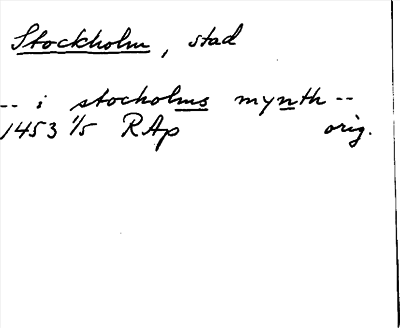 Stockholm, stad
-- i stocholms mynth --
1453 1/5 RAp orig.